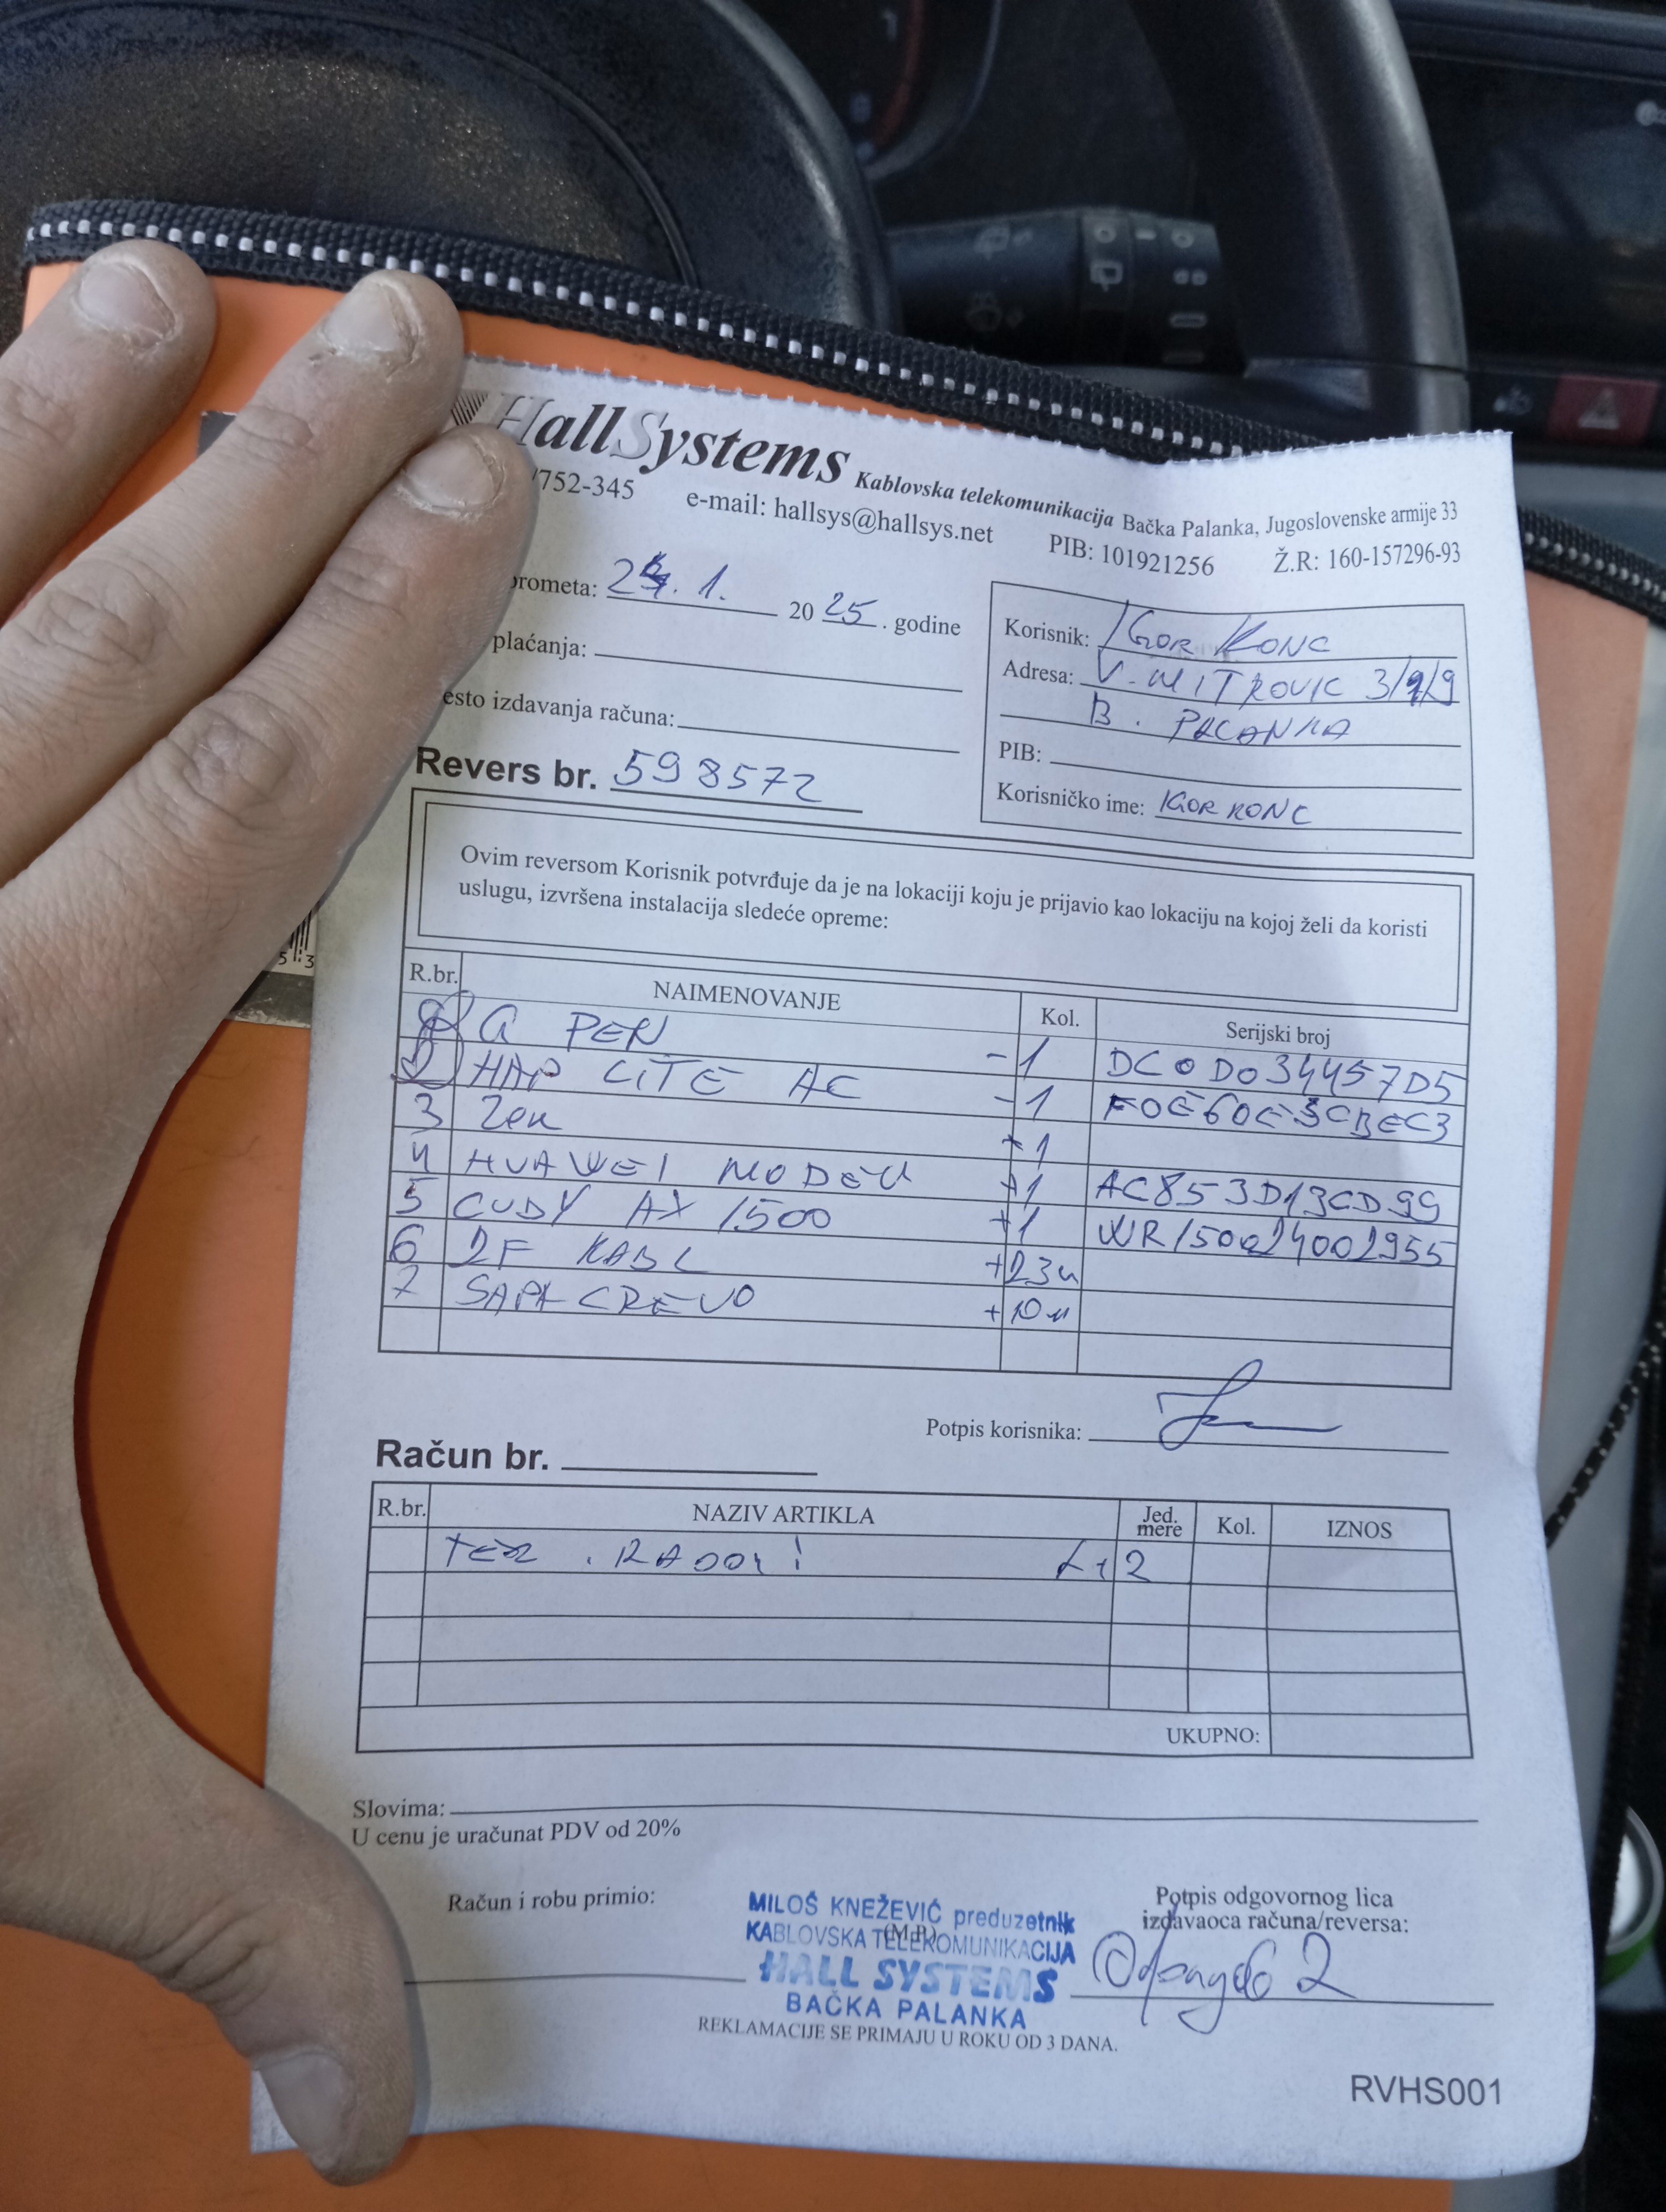 HallSystems Kablovska telekomunikacija Bačka Palanka, Jugoslovenske armije 33
/752-345 e-mail: hallsys@hallsys.net PIB: 101921256 Ž.R: 160-157296-93
prometa: 1. 2025. godine
plaćanja:
esto izdavanja računa:
Revers br. 598572
Korisnik: IGOR KONC
Adresa: V. MITROVIC 3/9
B. PALANKA
PIB:
Korisničko ime: IGORKONC
Ovim reversom Korisnik potvrđuje da je na lokaciji koju je prijavio kao lokaciju na kojoj želi da koristi
uslugu, izvršena instalacija sledeće opreme:
R.br. NAIMENOVANJE Kol. Serijski broj
G PEN -1 DC0D034457D5
2 HAP LITE AC -1 F0E60E3CBEC3
3 Zen +1
4 HUAWEI MODEM +1 AC853D13CD99
5 CUDY AX 1500 +1 WR150024002955
6 2F KABL +23m
7 SAPA CREVO +10m
Potpis korisnika:
Račun br.
R.br. NAZIV ARTIKLA Jed. mere Kol. IZNOS
TER. RADOVI 2
UKUPNO:
Slovima:
U cenu je uračunat PDV od 20%
Račun i robu primio:
MILOŠ KNEŽEVIĆ preduzetnik
(M.P.)
KABLOVSKA TELEKOMUNIKACIJA
HALL SYSTEMS
BAČKA PALANKA
Potpis odgovornog lica
izdavaoca računa/reversa:
2
REKLAMACIJE SE PRIMAJU U ROKU OD 3 DANA.
RVHS001